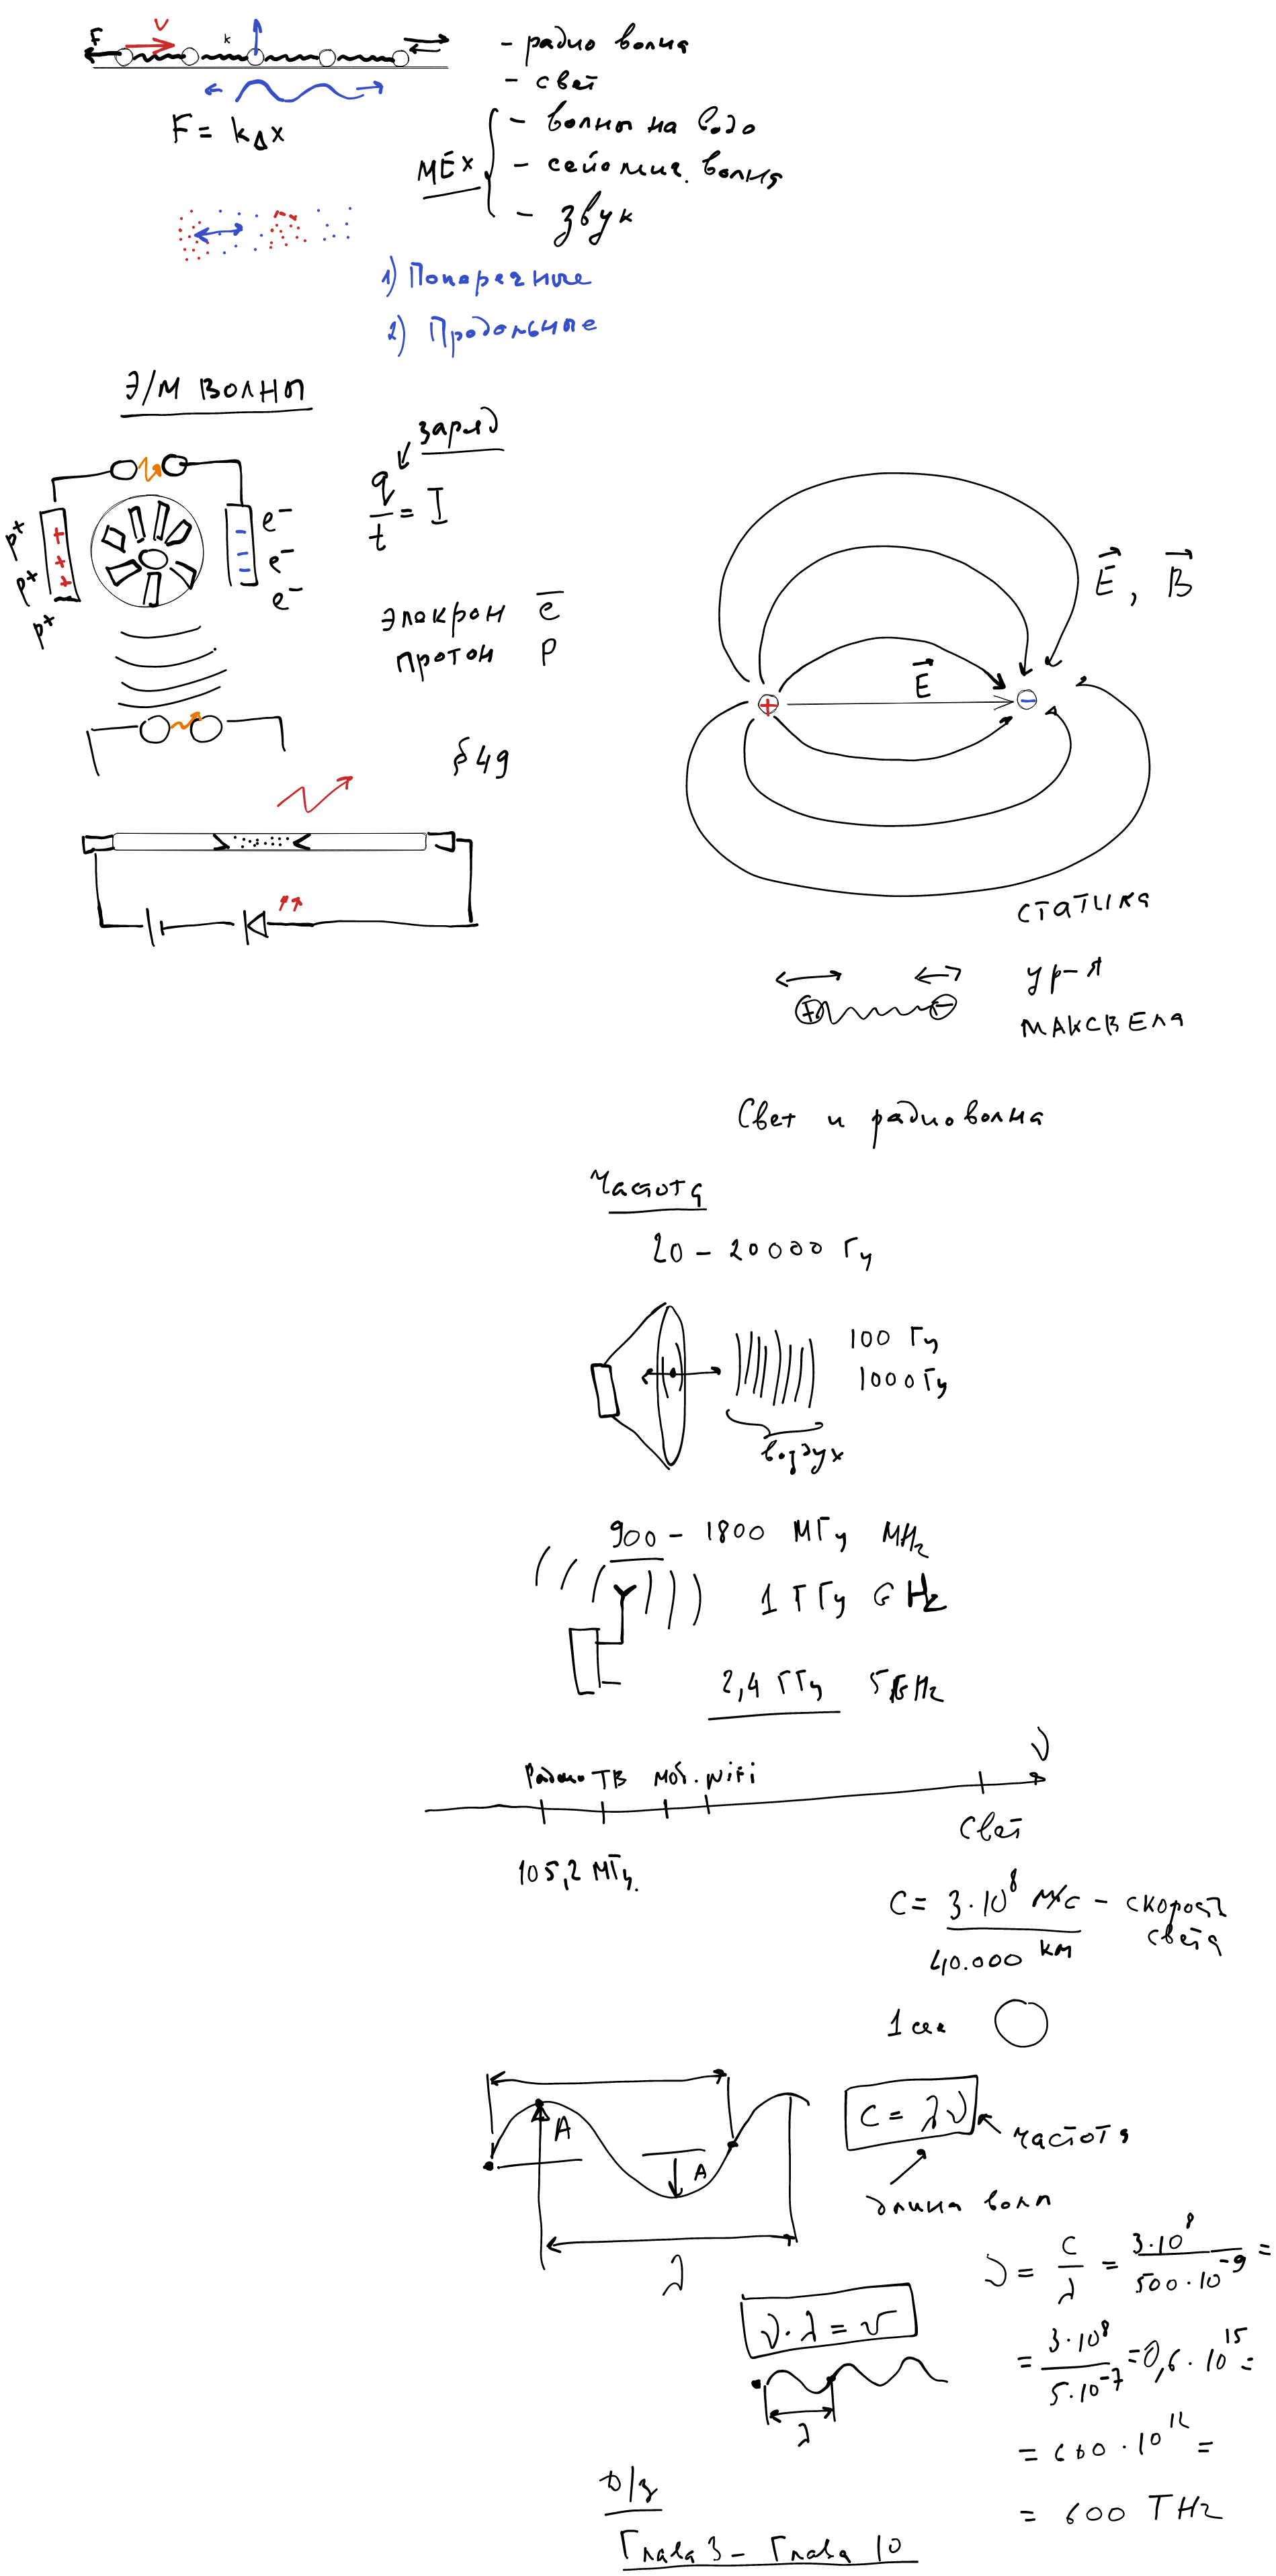 F V k
F = kΔx
- радио волна
- свет
МЕХ
- волны на водо
- сейсмич. волна
- звук
1) Поперечные
2) Продольные
Э/М ВОЛНЫ
заряд
q/t = I
p+ p+ p+
+ + +
- - -
e⁻ e⁻ e⁻
элекрон e̅
протон p
§ 49
E⃗, B⃗
E⃗
+ -
СТАТИКА
ур-я
МАКСВЕЛА
+ -
Свет и радиоволна
Частота
20 - 20000 Гц
100 Гц
1000 Гц
воздух
900 - 1800 МГц MHz
1 ГГц GHz
2,4 ГГц 5 GHz
Радио ТВ моб. WiFi ν
Свет
105,2 МГц.
c = 3·10⁸ м/с - скорость света
40.000 км
1 сек
A A
c = λν
частота
длина волн
λ
ν = c/λ = 3·10⁸/500·10⁻⁹ =
ν·λ = v
= 3·10⁸/5·10⁻⁷ = 0,6·10¹⁵ =
λ
= 600·10¹² =
= 600 THz
D/з
Глава 3 - Глава 10